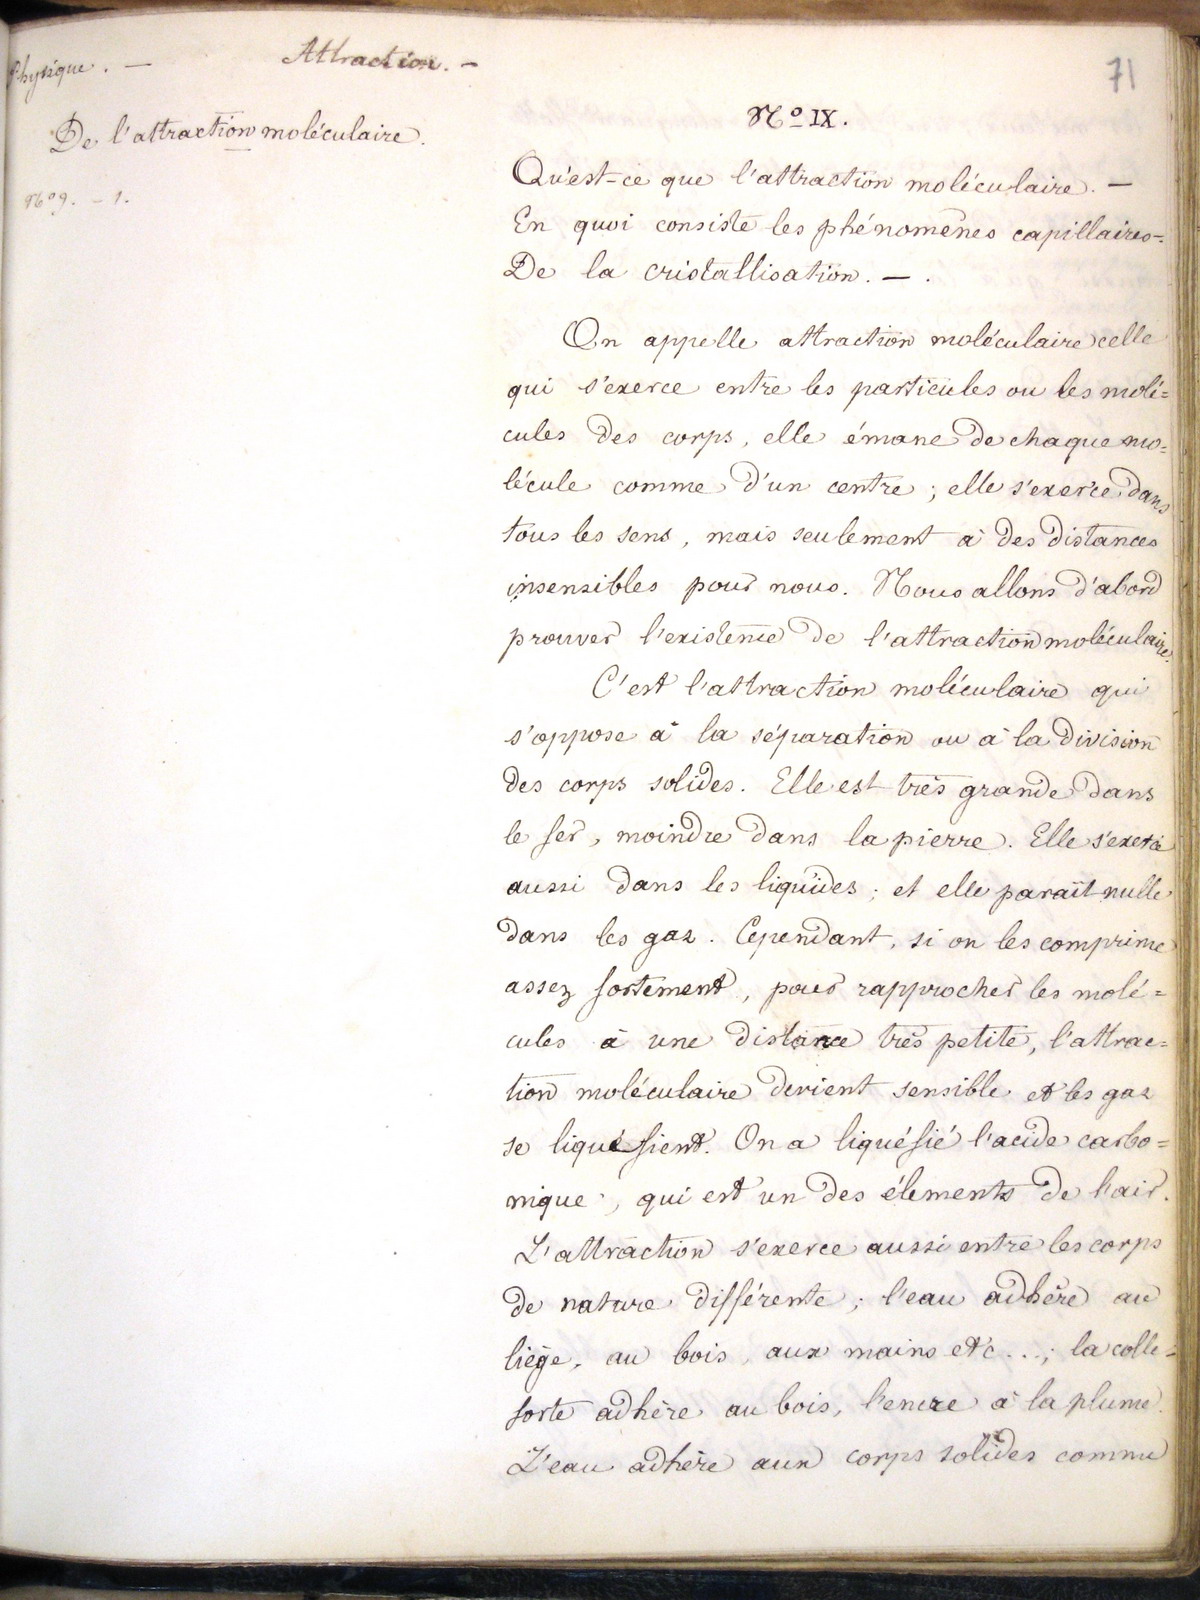 Physique. —
Attraction. —
71
De l'attraction moléculaire.
No 9. - 1.
No IX.
Qu'est-ce que l'attraction moléculaire. —
En quoi consiste les phénomènes capillaires-
De la cristallisation. — .
On appelle attraction moléculaire celle
qui s'exerce entre les particules ou les molé=
cules des corps, elle émane de chaque mo=
lécule comme d'un centre ; elle s'exerce dans
tous les sens, mais seulement à des distances
insensibles pour nous. Nous allons d'abord
prouver l'existence de l'attraction moléculaire.
C'est l'attraction moléculaire qui
s'oppose à la séparation ou à la division
des corps solides. Elle est très grande dans
le fer, moindre dans la pierre. Elle s'exerce
aussi dans les liquides ; et elle paraît nulle
dans les gaz. Cependant, si on les comprime
assez fortement, pour rapprocher les molé=
cules à une distance très petite, l'attrac=
tion moléculaire devient sensible et les gaz
se liquéfient. On a liquéfié l'acide carbo=
nique, qui est un des élements de l'air.
L'attraction s'exerce aussi entre les corps
de nature différente ; l'eau adhère au
liège, au bois, aux mains etc ... ; la colle-
forte adhère au bois, l'encre à la plume.
L'eau adhère aux corps solides comme